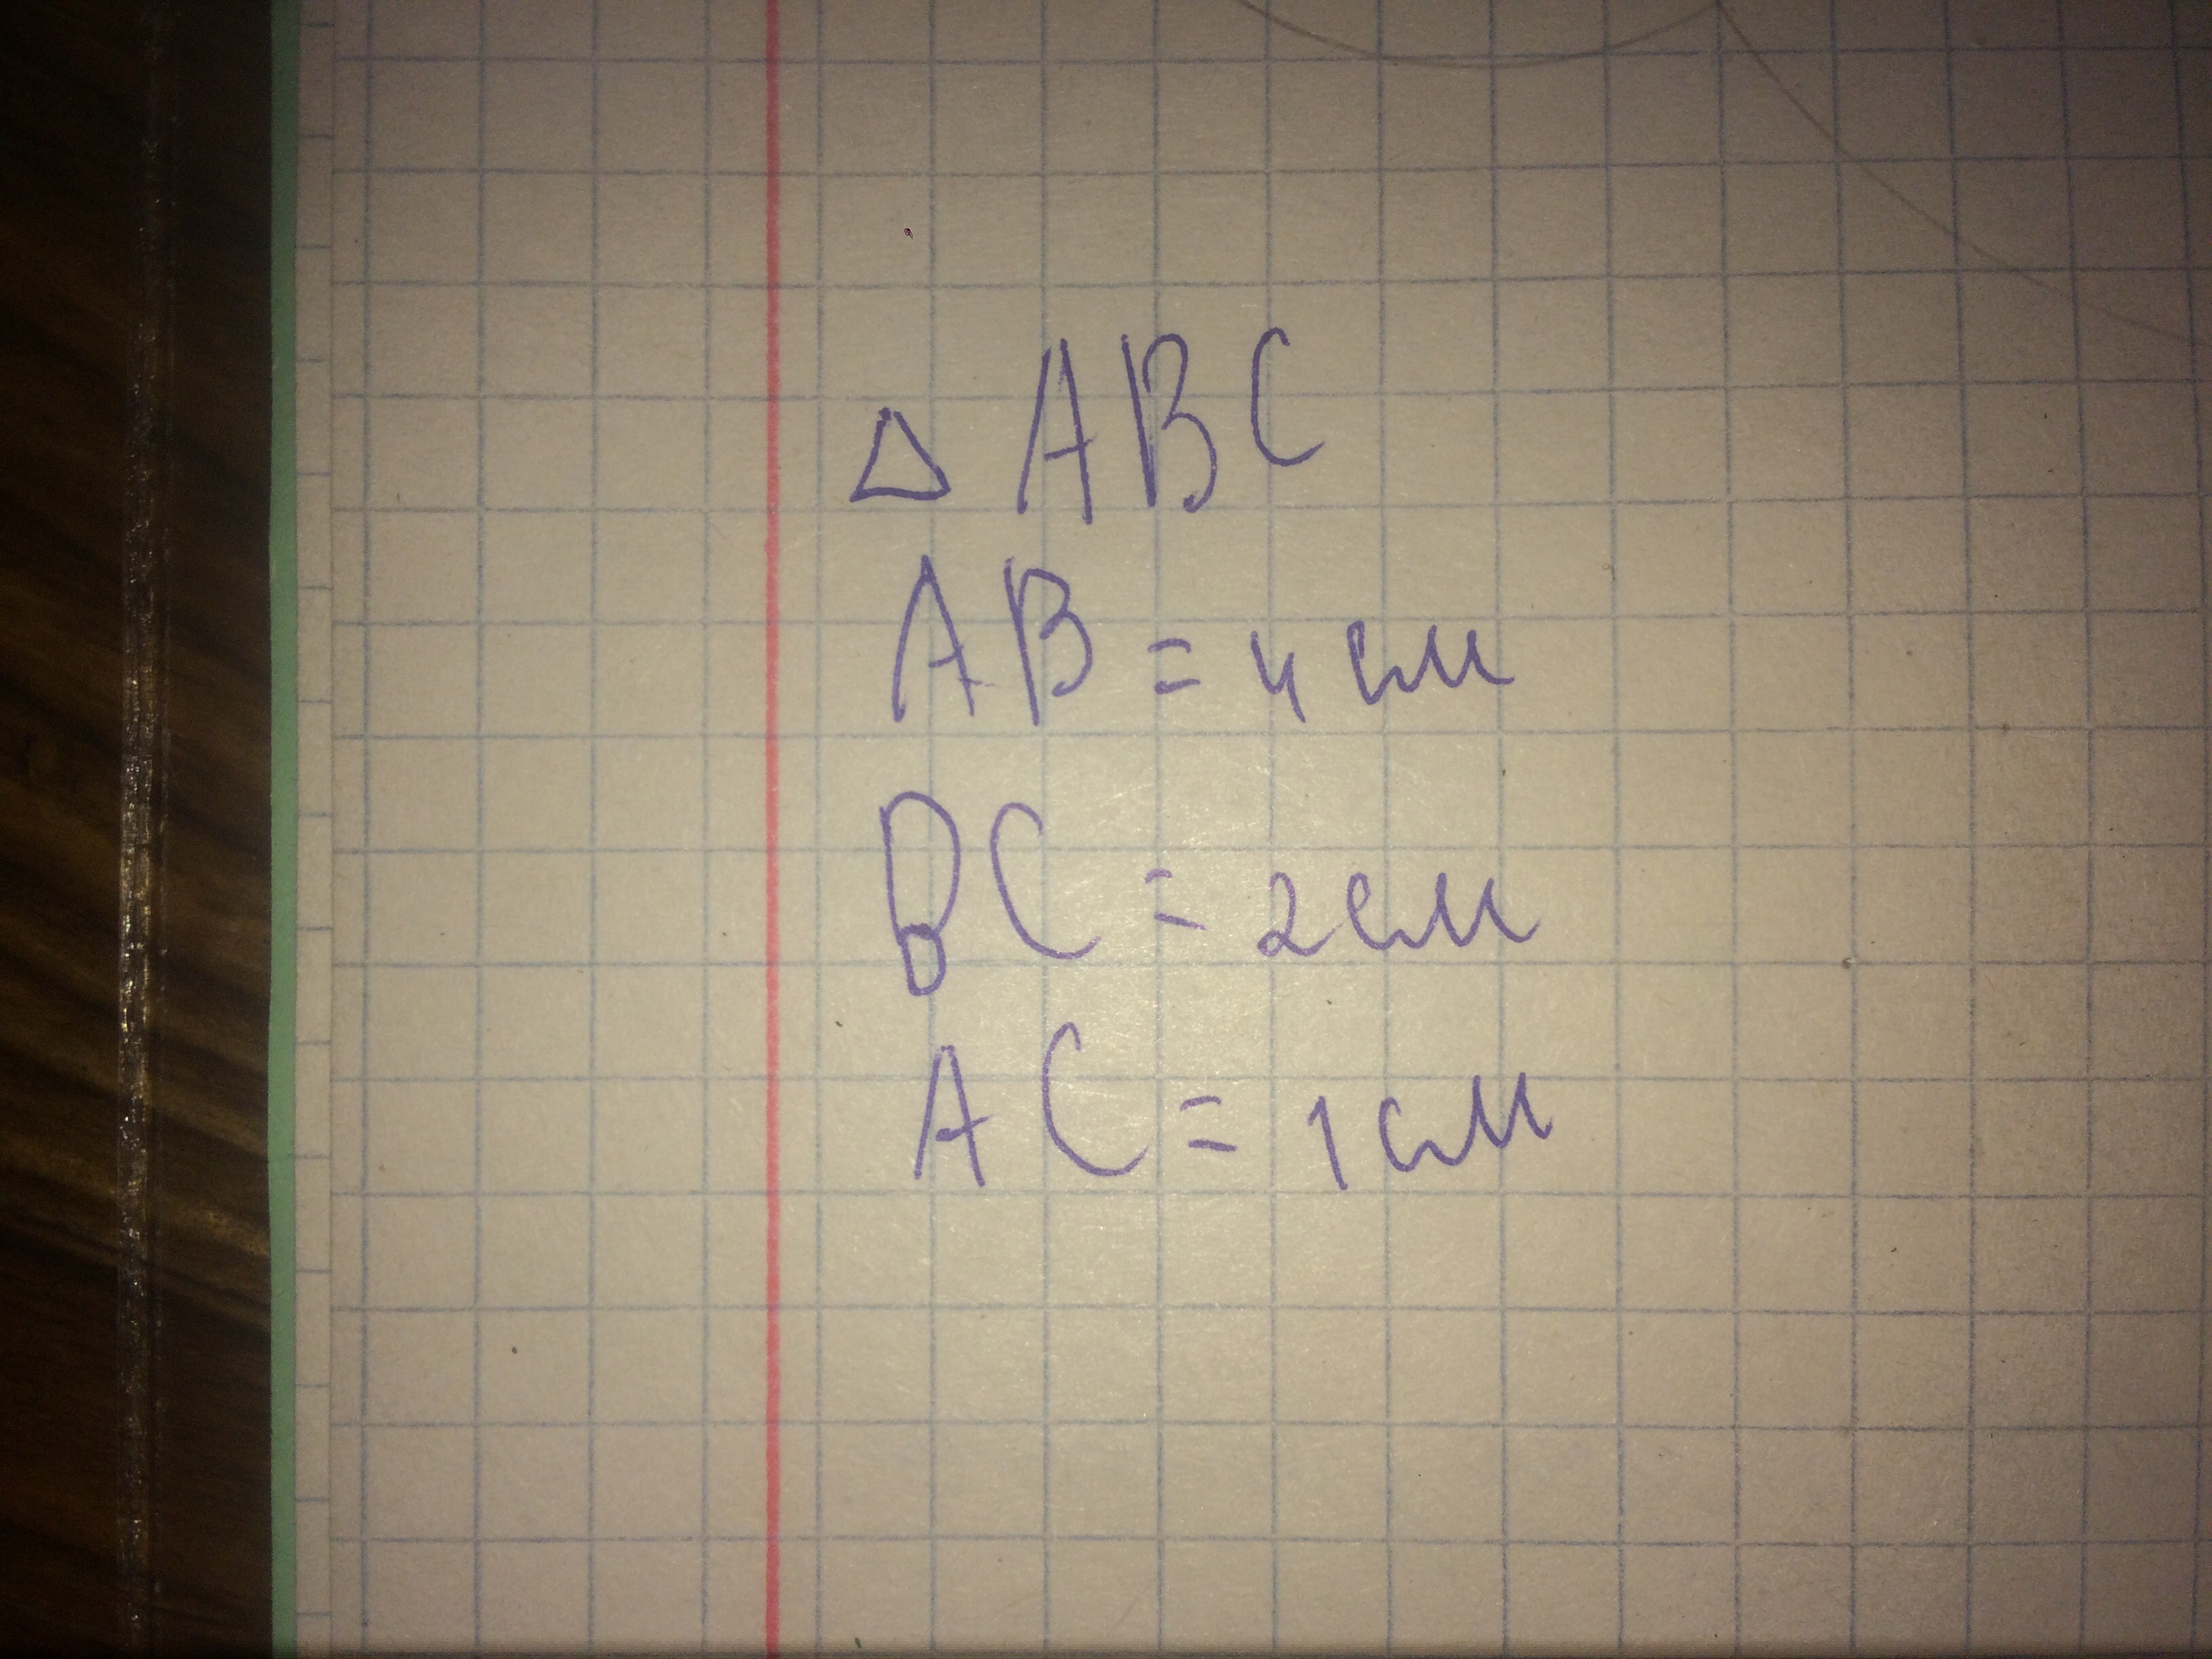 △ ABC
AB = 4 см
BC = 2 см
AC = 1 см